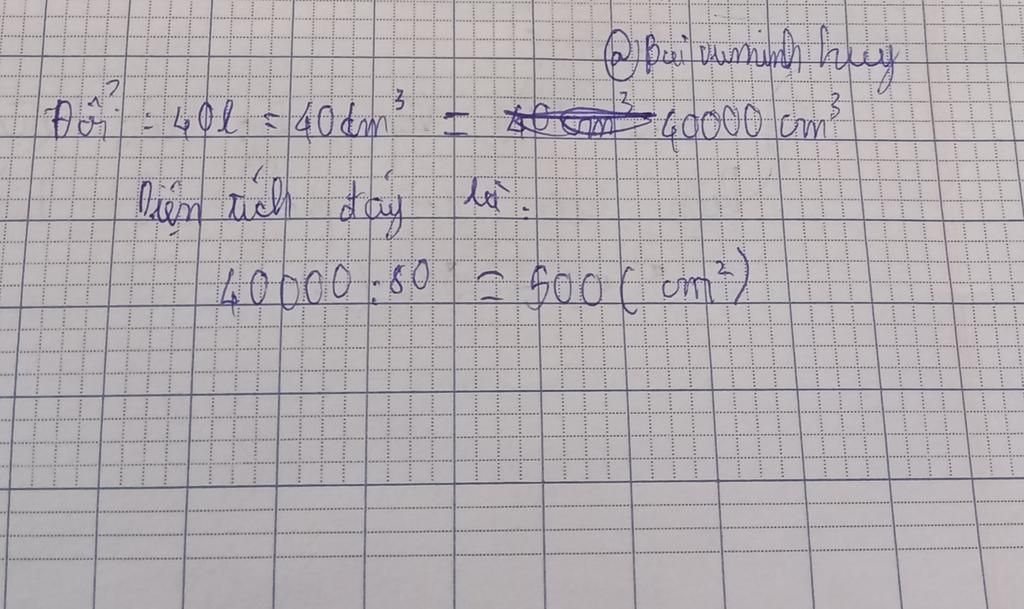 @Bùi vũ minh huy
Đổi : 40l = 40dm³ = 40000 cm³
Diện tích đáy là :
40000 : 80 = 500 ( cm²)